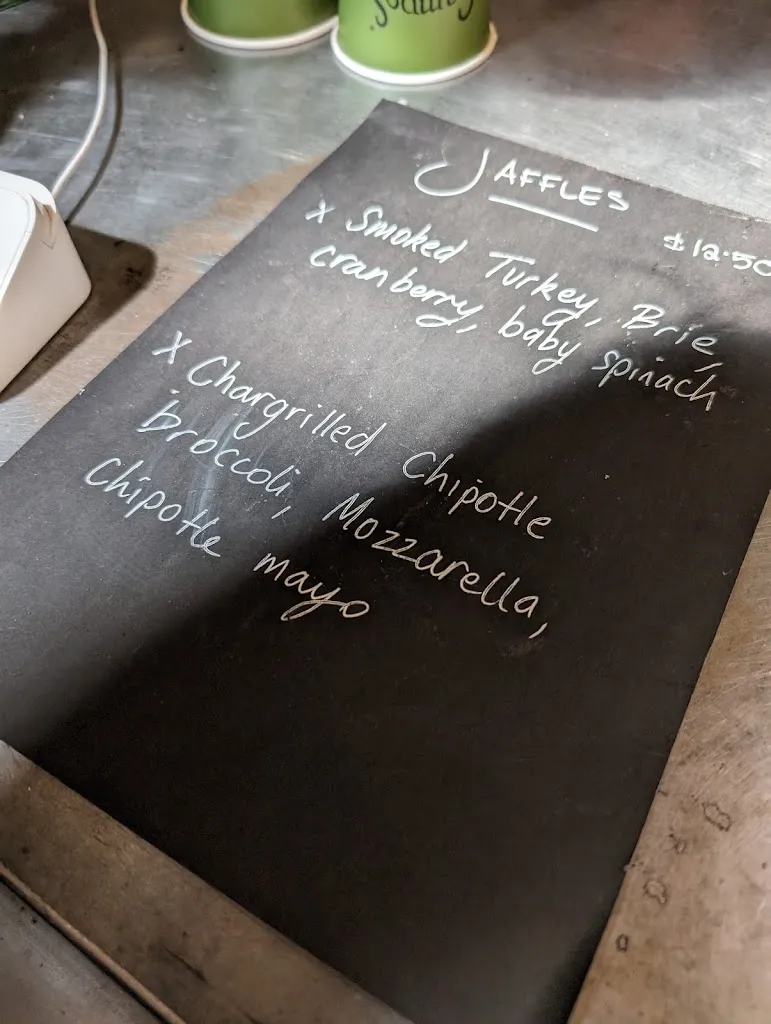 JAFFLES
$12.50
x Smoked Turkey, Brie,
cranberry, baby spinach
x Chargrilled Chipotle
broccoli, Mozzarella,
Chipotle mayo